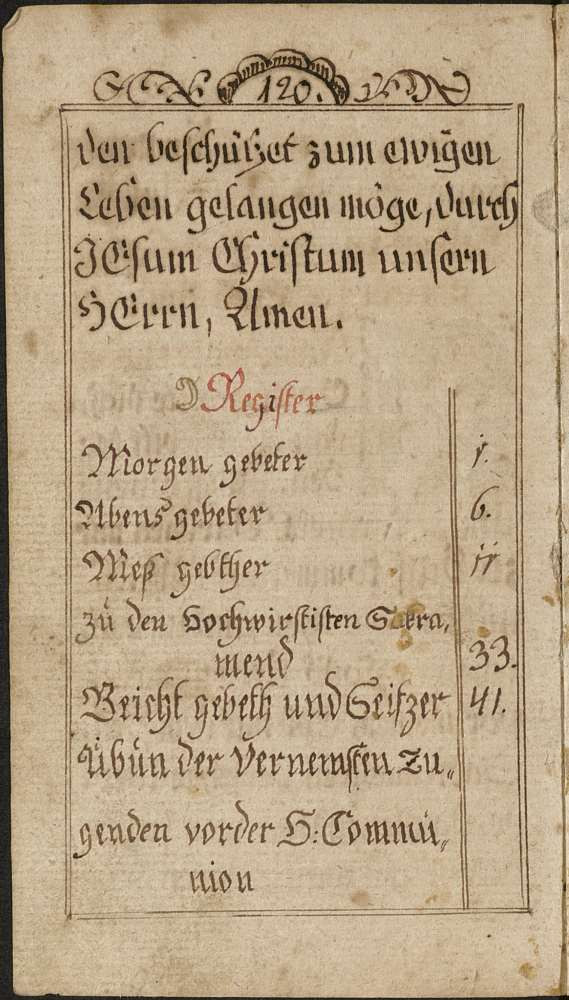 120.
den beschützet zum ewigen
Leben gelangen möge, durch
JEsum Christum unsern
HErrn, Amen.
D Register
Morgen gebeter 1.
Abens gebeter 6.
Meß gebther 11
zu den Hochwirstisten Sacra,
mend 33.
Beicht gebeth und Seifzer 41.
Übün der Vernemsten Tu„
genden vorder H: Commu„
nion